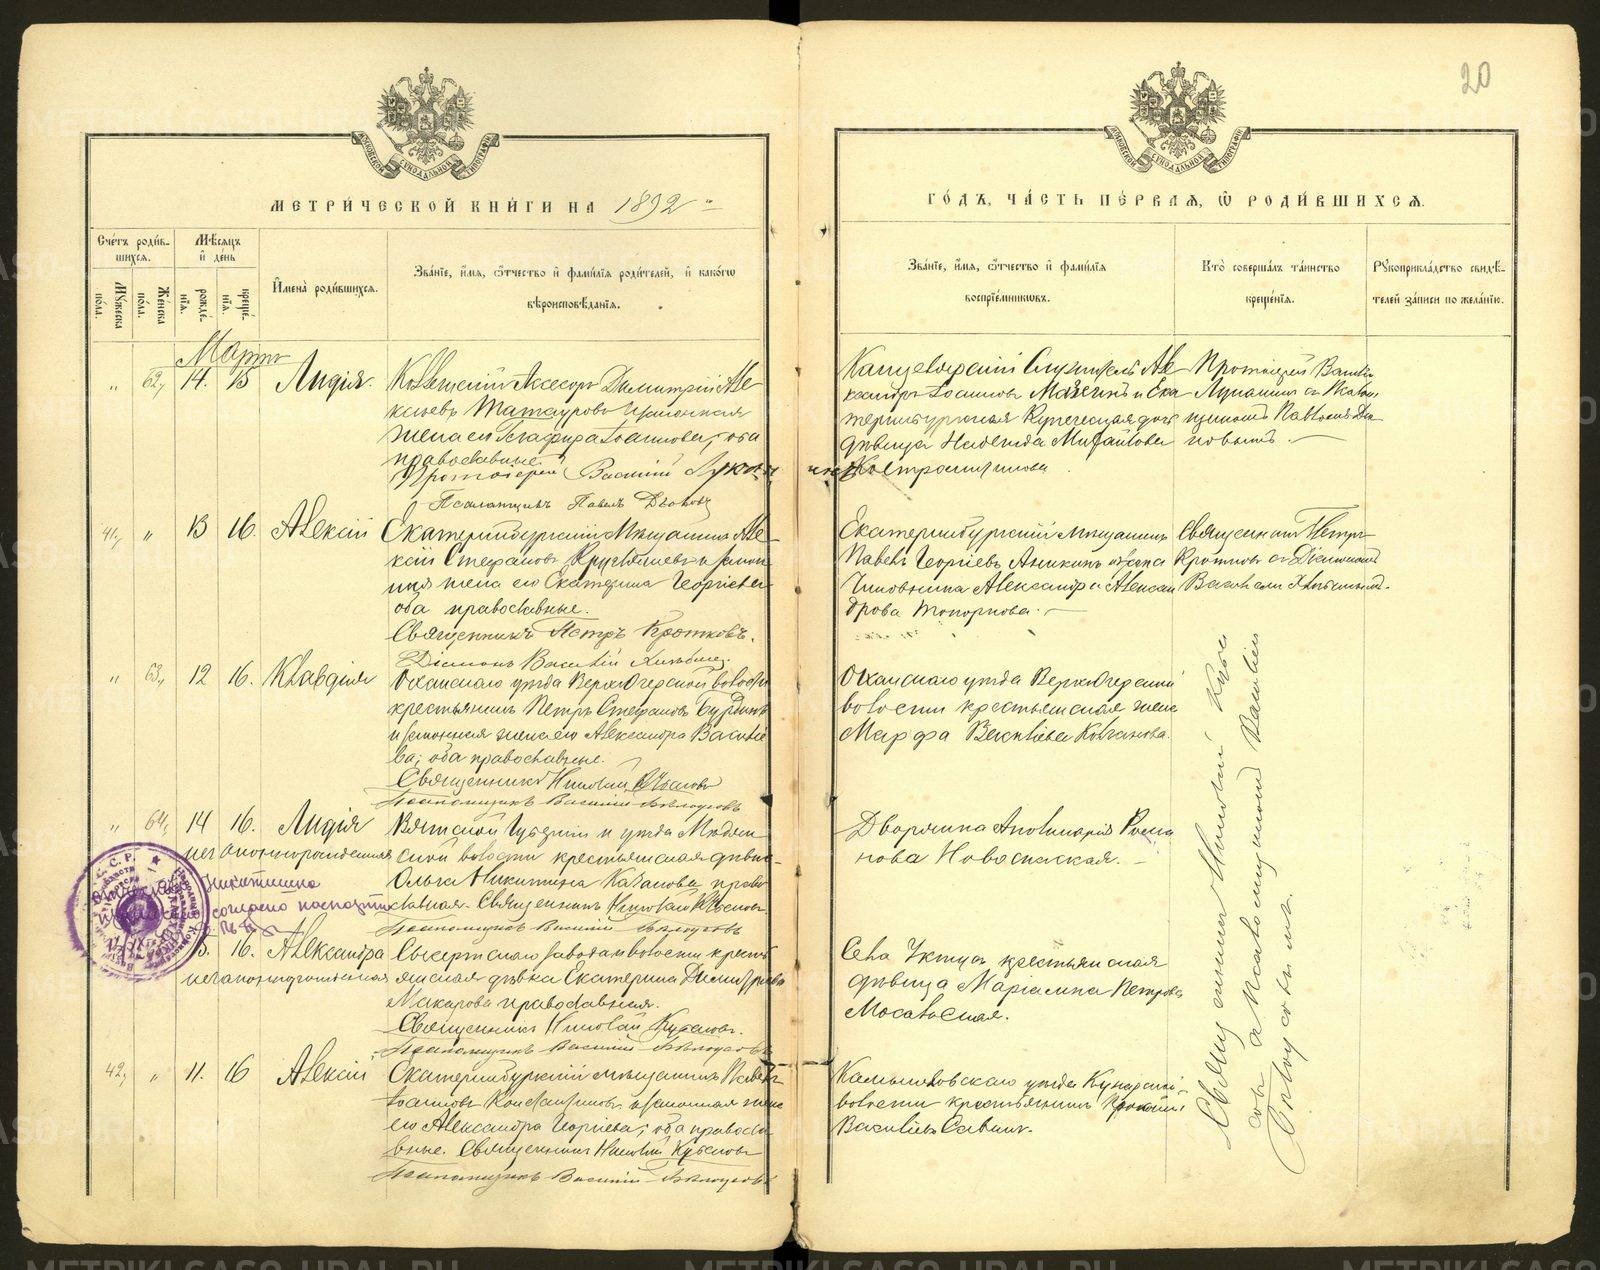 20
МЕТРИ́ЧЕСКОЙ КНИ́ГИ НА 1892
ГО́ДЪ, ЧА́СТЬ ПЕ́РВАЯ, Ѿ РОДИ́ВШИХСЯ.
Сче́тъ роди́вшихся.
Мꙋжеска по́ла.
Же́нска по́ла.
Мѣ́сяцъ и҆ де́нь
рожде́нїя.
креще́нїя.
И҆мена̀ роди́вшихся.
Зва́нїе, и҆́мя, ѻ҆́тчество и҆ фами́лїя роди́телей, и҆ како́гѡ
вѣроисповѣ́данїя.
Зва́нїе, и҆́мя, ѻ҆́тчество и҆ фами́лїя
воспрїе́мникѡвъ.
Кто̀ соверша́лъ та́инство
креще́нїя.
Рꙋкоприкла́дство свидѣ́телей за́писи по жела́нїю.
Мартъ
" 62, 14. 15 Лидія.
Коллежскій Асессоръ Димитрій Але
ксѣевъ Татауровъ и законная
жена его Глафира Іоаннова, оба
православные
Протоіерей Василій Луканинъ
Псаломщикъ Павелъ Дьяковъ
Канцелярскій Служитель Але
ксандръ Іоанновъ Мазенинъ и Ека
теринбургская Купеческая дочь
дѣвица Надежда Михайлова
Костромитинова
Протоіерей Васил.
Луканинъ съ Псалом
щикомъ Павломъ Дья
ковымъ.
41, " 13 16. Алексій
Екатеринбургскій Мѣщанинъ Але
ксій Стефановъ Кругляшевъ и закон
ная жена его Екатерина Георгіева
оба православные.
Священникъ Петръ Кротковъ.
Діаконъ Василій
Екатеринбургскій мѣщанинъ
Павелъ Георгіевъ Аникинъ и жена
Чиновника Александра Алексан
дрова Топоркова.
Священникъ Петръ
Кротковъ съ Діакономъ
Василіемъ
" 63, 12 16. Клавдія
Оханскаго уѣзда Верхъ Югерской волости
крестьянинъ Петръ Стефановъ Бурдинъ
и законная жена его Александра Василіе
ва; оба православные.
Священникъ Николай
Псаломщикъ Василій Бѣлоусовъ
Оханскаго уѣзда Верхъ Югерской
волости крестьянская жена
Марфа Василіева Колчанова.
" 64, 14 16. Лидія
незаконнорожденная
Вятской Губерніи и уѣзда
волости крестьянская дѣвица
Ольга Никитина Казанова право
славная. Священникъ Николай
Псаломщикъ Василій Бѣлоусовъ
Дворянина Аполинарія
нова Новосельская.
Никитишна
согласно
15. 16. Александра
незаконнорожденная
Сысертскаго завода и волости кресть
янская дѣвка Екатерина Димитріева
Макарова православная.
Священникъ Николай
Псаломщикъ Василій Бѣлоусовъ
Села Уктуса крестьянская
дѣвица Маріамна Петрова
42, " 11. 16 Алексій
Екатеринбургскій мѣщанинъ Павелъ
Іоанновъ Константиновъ и законная жена
его Александра Георгіева; оба правосла
вные. Священникъ Николай
Псаломщикъ Василій Бѣлоусовъ
Камышловскаго уѣзда Кунарской
волости крестьянинъ
Василіевъ Савинъ.
Священникъ Николай
съ Псаломщикомъ Василіемъ
Бѣлоусовымъ.